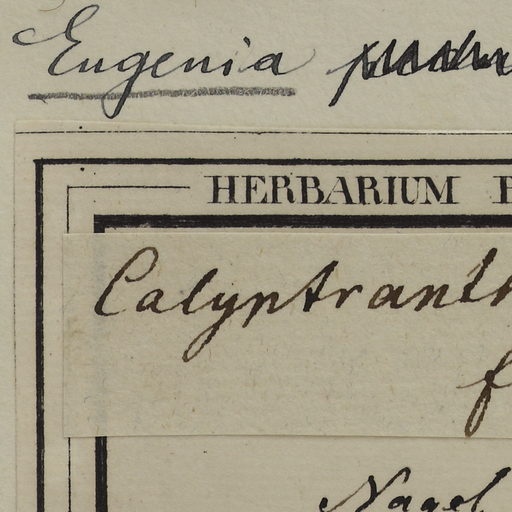 Eugenia
HERBARIUM
Calyptranth
f
Nagel